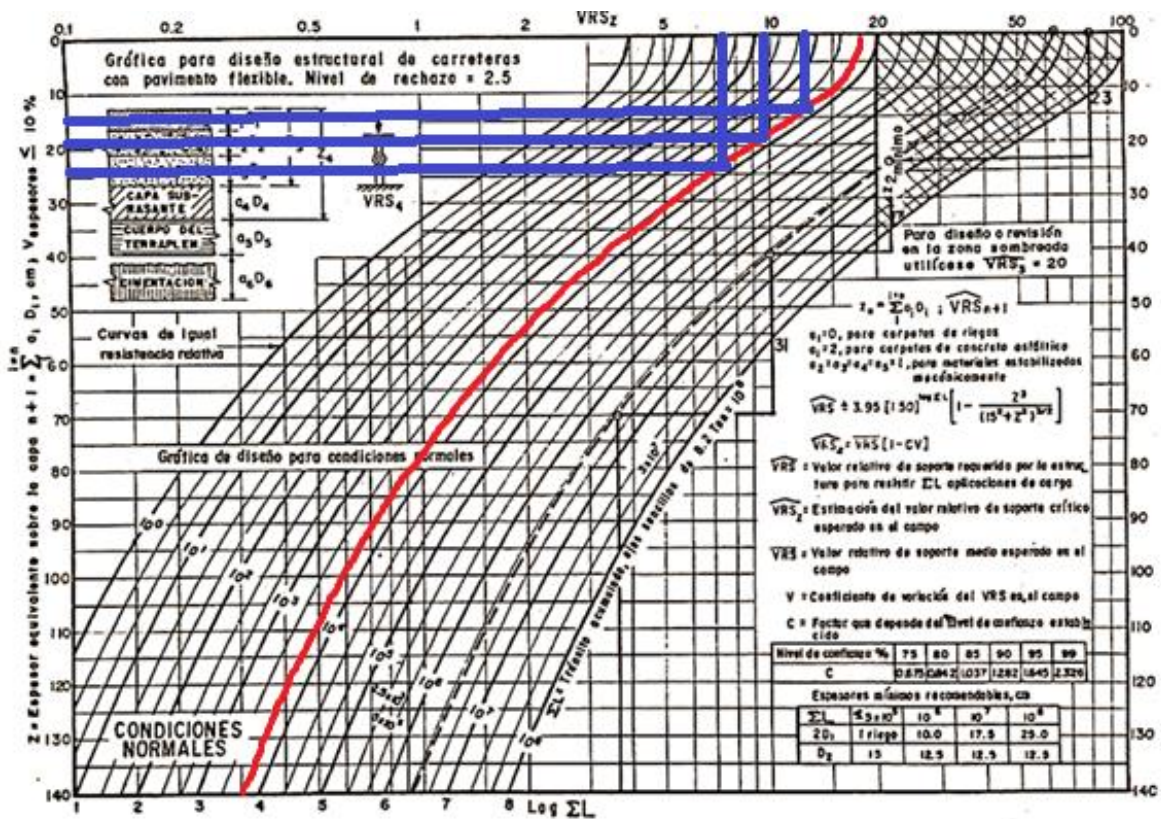 0.1 0.2 0.5 1 2 VRSz 5 10 20 50 100
Gráfica para diseño estructural de carreteras
con pavimento flexible. Nivel de rechazo = 2.5
0
10
20
30
40
50
60
70
80
90
100
110
120
130
140
Z = Espesor equivalente sobre la capa n+1 = Σ ai Di, cm; V espesores ≤ 10 %
CAPA SUB-
RASANTE
CUERPO DEL
TERRAPLEN
CIMENTACION
a4D4
a5D5
a6D6
Z4
VRS4
Curvas de igual
resistencia relativa
Gráfica de diseño para condiciones normales
10^0
10^1
10^2
10^3
10^4
10^5
10^6
10^7
10^8
ΣL = Tránsito acumulado, ejes sencillos de 8.2 Ton = 10^8
CONDICIONES
NORMALES
1 2 3 4 5 6 7 8 Log ΣL
23
Z mínimo
31
Para diseño o revisión
en la zona sombreada
utilícese VRS3 = 20
a1=0, para carpetas de riegos
a1=2, para carpetas de concreto asfáltico
a2=a3=a4=a5=1, para materiales estabilizados
mecánicamente
VRSz = VRS [1-CV]
VRS = Valor relativo de soporte requerido por la estruc
tura para resistir ΣL aplicaciones de carga
VRSz = Estimación del valor relativo de soporte crítico
esperado en el campo
VRS = Valor relativo de soporte medio esperado en el
campo
V = Coeficiente de variación del VRS en el campo
C = Factor que depende del nivel de confianza estable
cido
Nivel de confianza % 75 80 85 90 95 99
C 0.675 0.842 1.037 1.282 1.645 2.326
Espesores mínimos recomendables, cm
ΣL 10^6 10^7 10^8
2D1 1 riego 10.0 17.5 25.0
D2 15 12.5 12.5 12.5
0
10
20
30
40
50
60
70
80
90
100
110
120
130
140